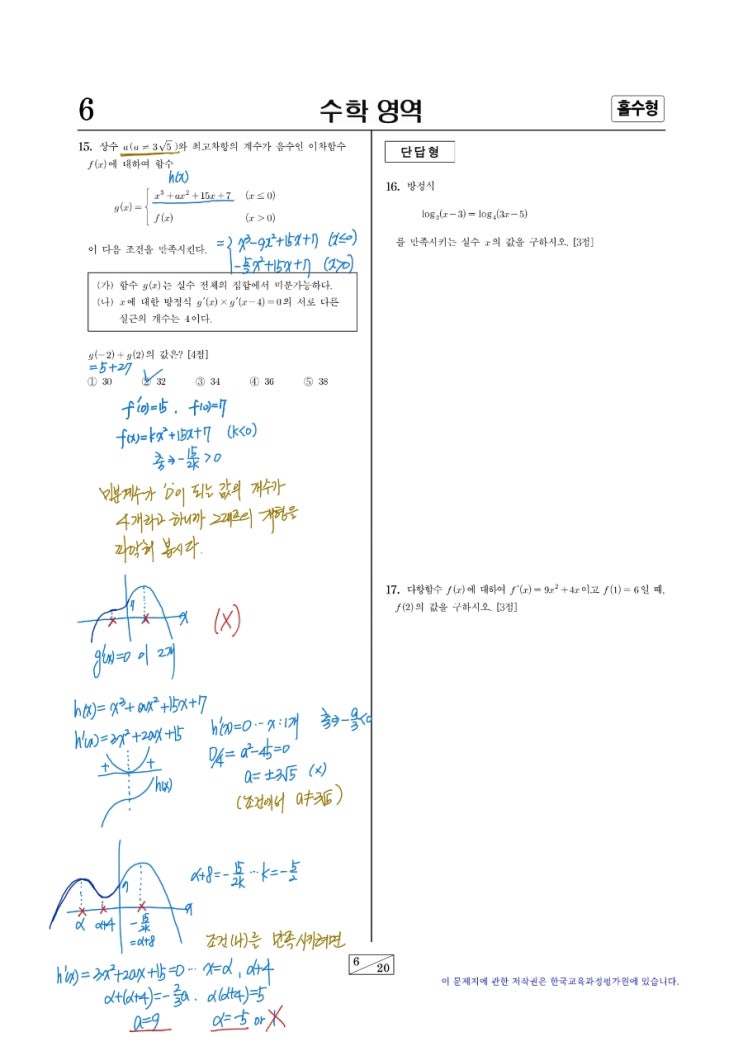 6 수학 영역 홀수형
15. 상수 a(a ≠ 3√5)와 최고차항의 계수가 음수인 이차함수
f(x)에 대하여 함수
h(x)
g(x) = { x³ + ax² + 15x + 7 (x ≤ 0)
f(x) (x > 0)
이 다음 조건을 만족시킨다.
= { x³-9x²+15x+7 (x≤0)
-5/2x²+15x+7 (x>0)
(가) 함수 g(x)는 실수 전체의 집합에서 미분가능하다.
(나) x에 대한 방정식 g′(x)×g′(x-4)=0의 서로 다른
실근의 개수는 4이다.
g(-2)+g(2)의 값은? [4점]
= 5+27
① 30 ② 32 ③ 34 ④ 36 ⑤ 38
f′(0)=15, f(0)=7
f(x)=kx²+15x+7 (k<0)
축 ⇒ -15/2k > 0
미분계수가 '0'이 되는 값의 개수가
4개라고 하니까 그래프의 개형을
파악해 봅시다.
7
x
(X)
g′(x)=0 이 2개
h(x)= x³+ax²+15x+7
h′(x)= 3x²+2ax+15
+ +
h(x)
h′(x)=0 … x : 1개 축 ⇒ -a/3<0
D/4 = a²-45=0
a= ±3√5 (x)
(조건에서 a≠3√5)
7
x
α α+4 -15/2k
=α+8
α+8 = -15/2k … k=-5/2
조건(나)를 만족시키려면
h′(x)= 3x²+2ax+15=0 … x=α, α+4
α+(α+4)=-2/3a, α(α+4)=5
a=9 α=-5 or 1
단답형
16. 방정식
log₂(x-3) = log₄(3x-5)
를 만족시키는 실수 x의 값을 구하시오. [3점]
17. 다항함수 f(x)에 대하여 f′(x)=9x²+4x이고 f(1)=6일 때,
f(2)의 값을 구하시오. [3점]
6 20
이 문제지에 관한 저작권은 한국교육과정평가원에 있습니다.